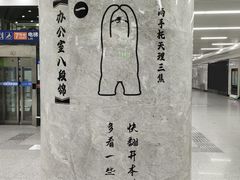 电梯
【办公室八段锦】
一
两手托天理三焦
多看一些
快翻开本